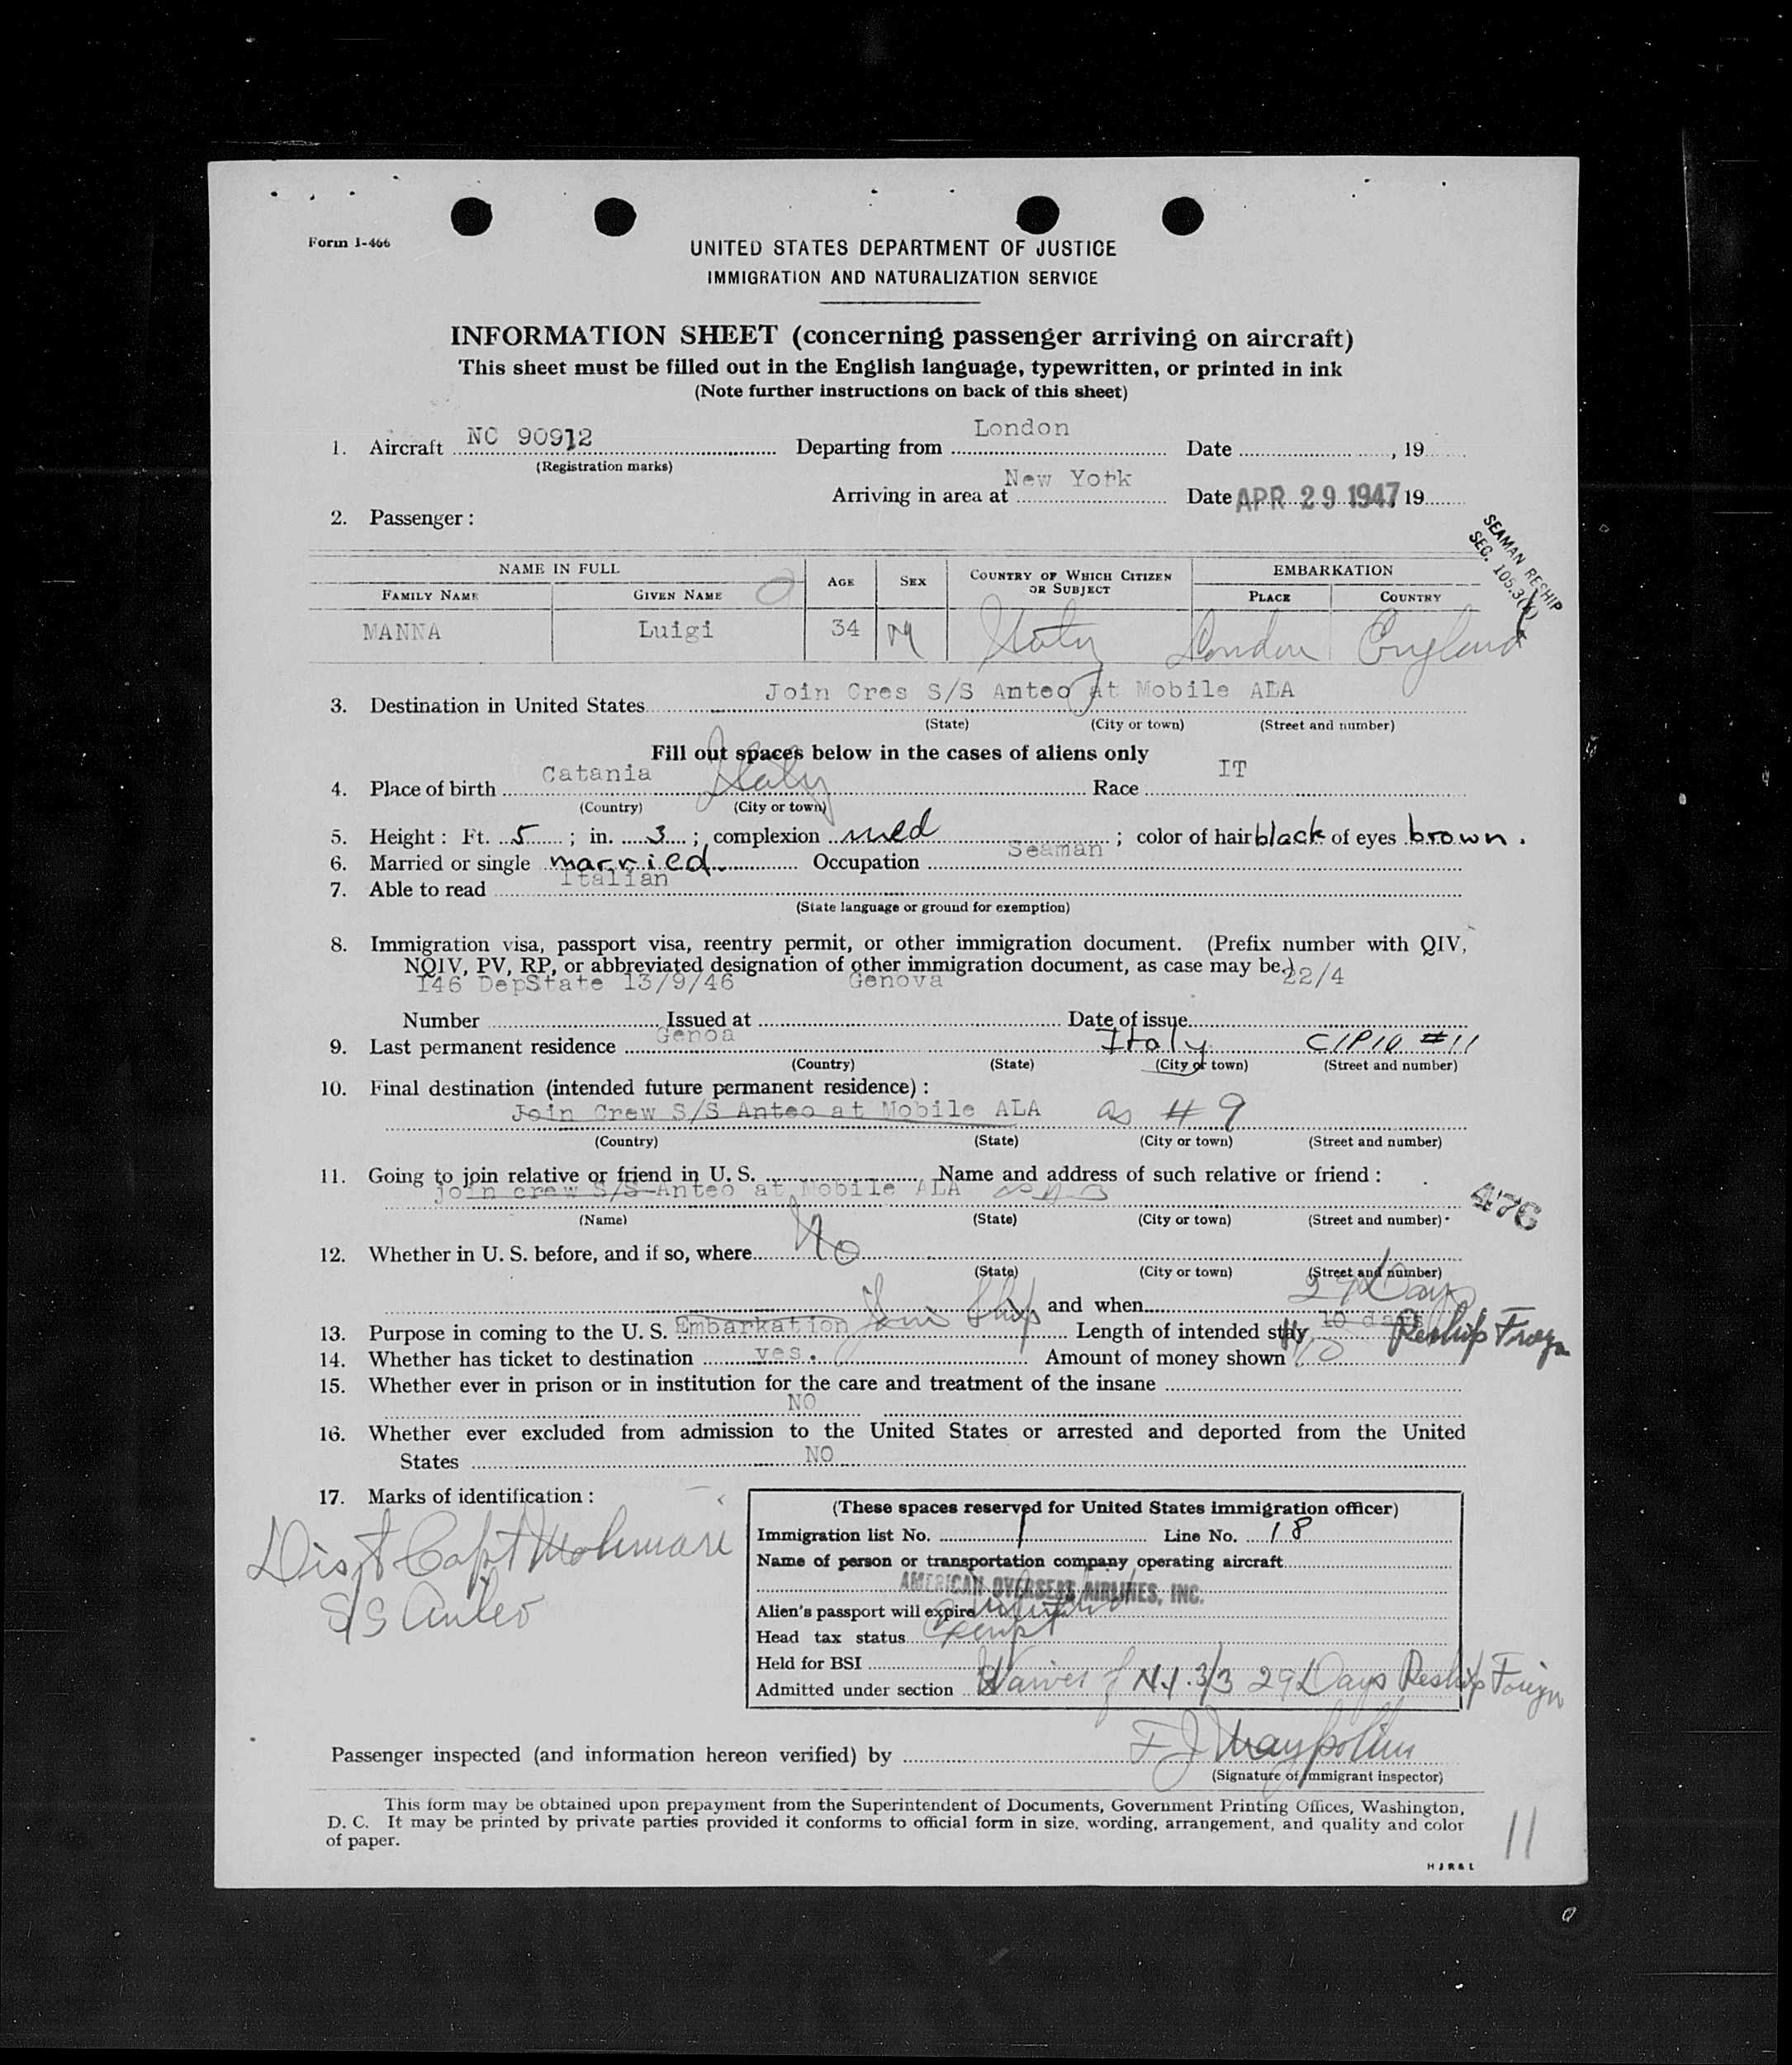 Form I-466
UNITED STATES DEPARTMENT OF JUSTICE
IMMIGRATION AND NATURALIZATION SERVICE
INFORMATION SHEET (concerning passenger arriving on aircraft)
This sheet must be filled out in the English language, typewritten, or printed in ink
(Note further instructions on back of this sheet)
1. Aircraft NC 90912 Departing from London Date , 19
(Registration marks)
Arriving in area at New York Date APR 29 1947 19
2. Passenger :
SEAMAN RESHIP
SEC. 105.3
NAME IN FULL AGE SEX COUNTRY OF WHICH CITIZEN OR SUBJECT EMBARKATION
FAMILY NAME GIVEN NAME PLACE COUNTRY
MANNA Luigi 34 M Italy London England
3. Destination in United States Join Cres S/S Anteo at Mobile ALA
(State) (City or town) (Street and number)
Fill out spaces below in the cases of aliens only
4. Place of birth Catania Italy Race IT
(Country) (City or town)
5. Height : Ft. 5 ; in. 3 ; complexion med ; color of hair black of eyes brown.
6. Married or single married. Occupation Seaman
7. Able to read Italian
(State language or ground for exemption)
8. Immigration visa, passport visa, reentry permit, or other immigration document. (Prefix number with QIV,
NQIV, PV, RP, or abbreviated designation of other immigration document, as case may be.)
146 DepState 13/9/46 Genova 22/4
Number Issued at Date of issue
9. Last permanent residence Genoa Italy #11
(Country) (State) (City or town) (Street and number)
10. Final destination (intended future permanent residence) :
Join Crew S/S Anteo at Mobile ALA as # 9
(Country) (State) (City or town) (Street and number)
11. Going to join relative or friend in U. S. Name and address of such relative or friend :
join crew S/S Anteo at Mobile ALA
476
(Name) (State) (City or town) (Street and number)
12. Whether in U. S. before, and if so, where No
(State) (City or town) (Street and number)
and when 29 Days
13. Purpose in coming to the U. S. Embarkation Join Ship Length of intended stay 10 days Reship Foreign
14. Whether has ticket to destination yes. Amount of money shown
15. Whether ever in prison or in institution for the care and treatment of the insane
NO
16. Whether ever excluded from admission to the United States or arrested and deported from the United
States NO
17. Marks of identification :
Capt
S/S Anteo
(These spaces reserved for United States immigration officer)
Immigration list No. 1 Line No. 18
Name of person or transportation company operating aircraft
AMERICAN OVERSEAS AIRLINES, INC.
Alien's passport will expire
Head tax status Exempt
Held for BSI
Admitted under section Waiver of N.I. 3/3 29 Days Reship Foreign
Passenger inspected (and information hereon verified) by
(Signature of immigrant inspector)
This form may be obtained upon prepayment from the Superintendent of Documents, Government Printing Offices, Washington,
D. C. It may be printed by private parties provided it conforms to official form in size, wording, arrangement, and quality and color
of paper.
11
H J R & L